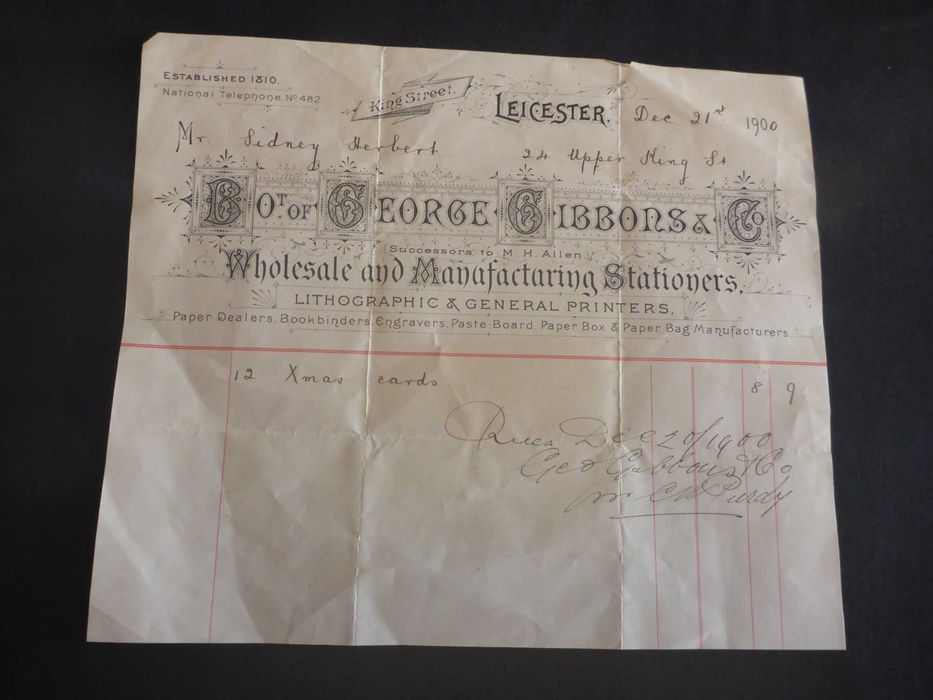 ESTABLISHED 1810.
National Telephone, No 482
King Street.
LEICESTER, Dec 21st 1900
Mr. Sidney Herbert 24 Upper King St
BOT. OF GEORGE GIBBONS & Co
(Successors to M. H. Allen.)
Wholesale and Manufacturing Stationers,
LITHOGRAPHIC & GENERAL PRINTERS.
Paper Dealers, Bookbinders, Engravers, Paste-Board, Paper Box & Paper Bag Manufacturers
12 Xmas cards 8 9
Dec 20/1900
Geo Gibbons & Co
pr C W Purdy